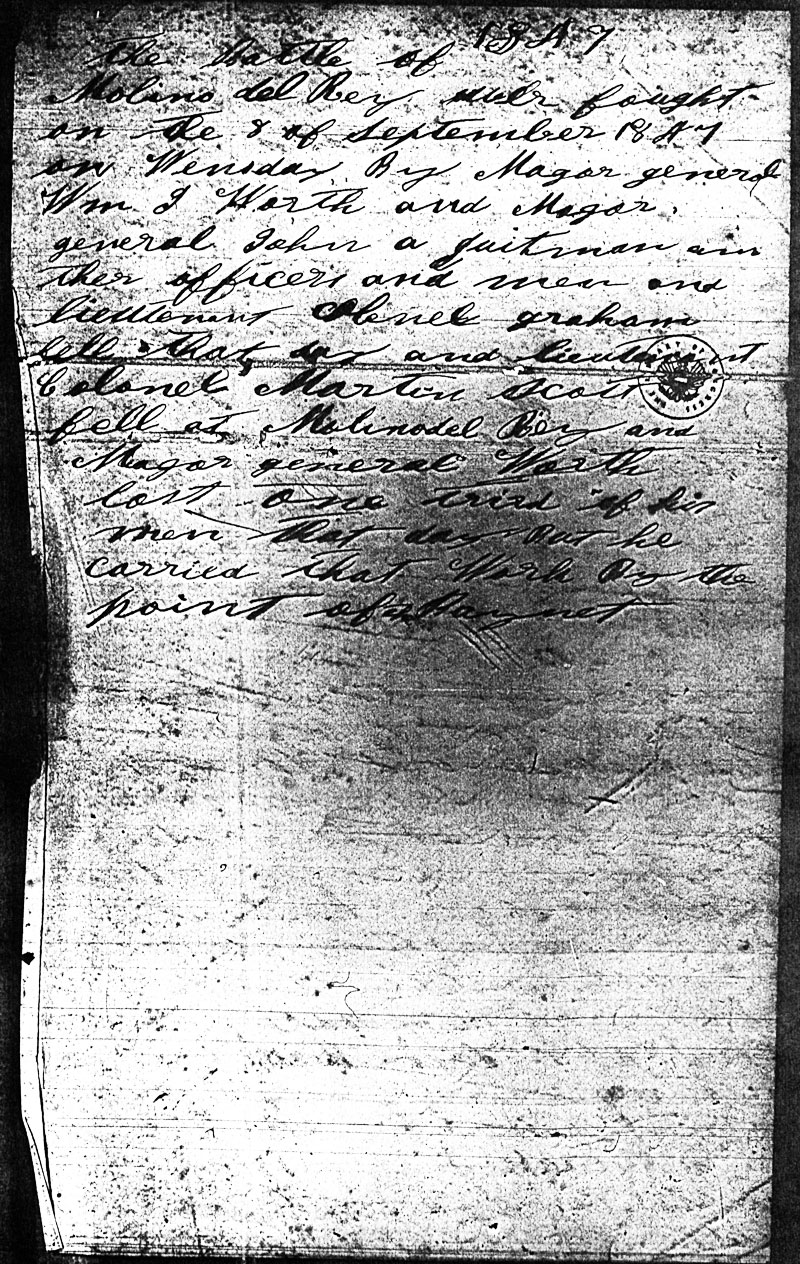 1847
the Battle of
Molino del Rey was fought
on the 8 of September 1847
on Wensday By Magor general
Wm J Worth and Magor
general John a Quitman an
ther officers and men and
lieutenant Colonel graham
fell that day and lieutenant
Colonel Martin Scott
fell at Molinodel Rey and
Magor general Worth
lost one trird of his
men that day But he
carried that Work By the
point of Baynet